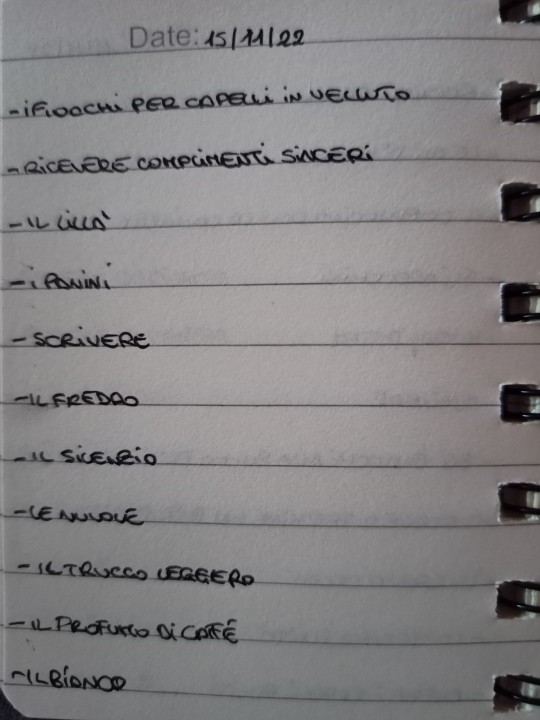 Date: 15/11/22
- i FIOCCHI PER CAPELLI iN VELLUTO
- RICEVERE COMPLIMENTi SINCERi
- IL LILLÀ
- i PANiNi
- SCRIVERE
- IL FREDDO
- IL SiLENZiO
- LE NUVOLE
- IL TRUCCO LEGGERO
- IL PROFUMO Di CAFFÉ
- IL BiANCO